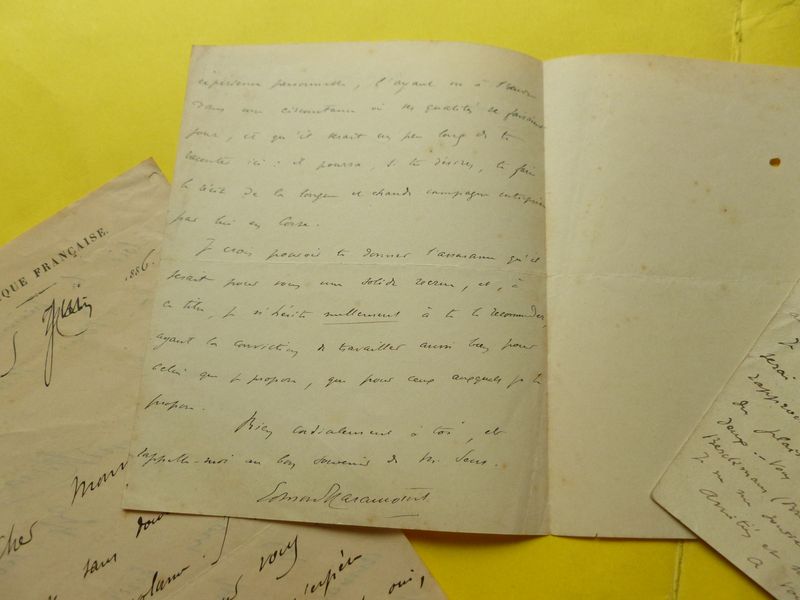 expérience personnelle, l'ayant vu à l'œuvre
dans une circonstance où ses qualités se faisaient
jour, et qu'il serait un peu long de te
raconter ici : il pourra, si tu désires, te faire
le récit de la longue et chaude campagne entreprise
par lui en Corse.
Je crois pouvoir te donner l'assurance qu'il
serait pour vous une solide recrue, et, à
ce titre, je n'hésite nullement à te le recommander,
ayant la conviction de travailler aussi bien pour
celui que je propose, que pour ceux auxquels je le
propose.
Bien cordialement à toi, et
rappelle-moi au bon souvenir de
Edmond Haraucourt
QUE FRANÇAISE.
1886.
Cher
sans
vous
oui,
Je
serai
du plais
Je ne me
Amitiés et
à vous